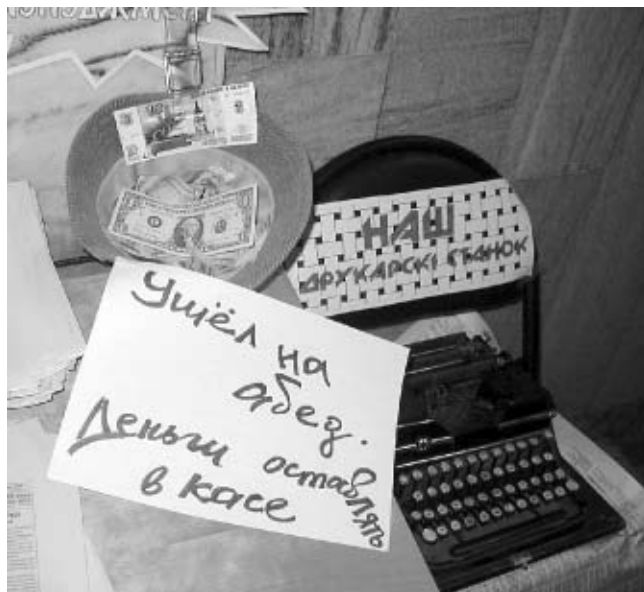 НАШ
ДРУКАРСКІ СТАНОК
Ушёл на
абед.
Деньги оставлять
в касе